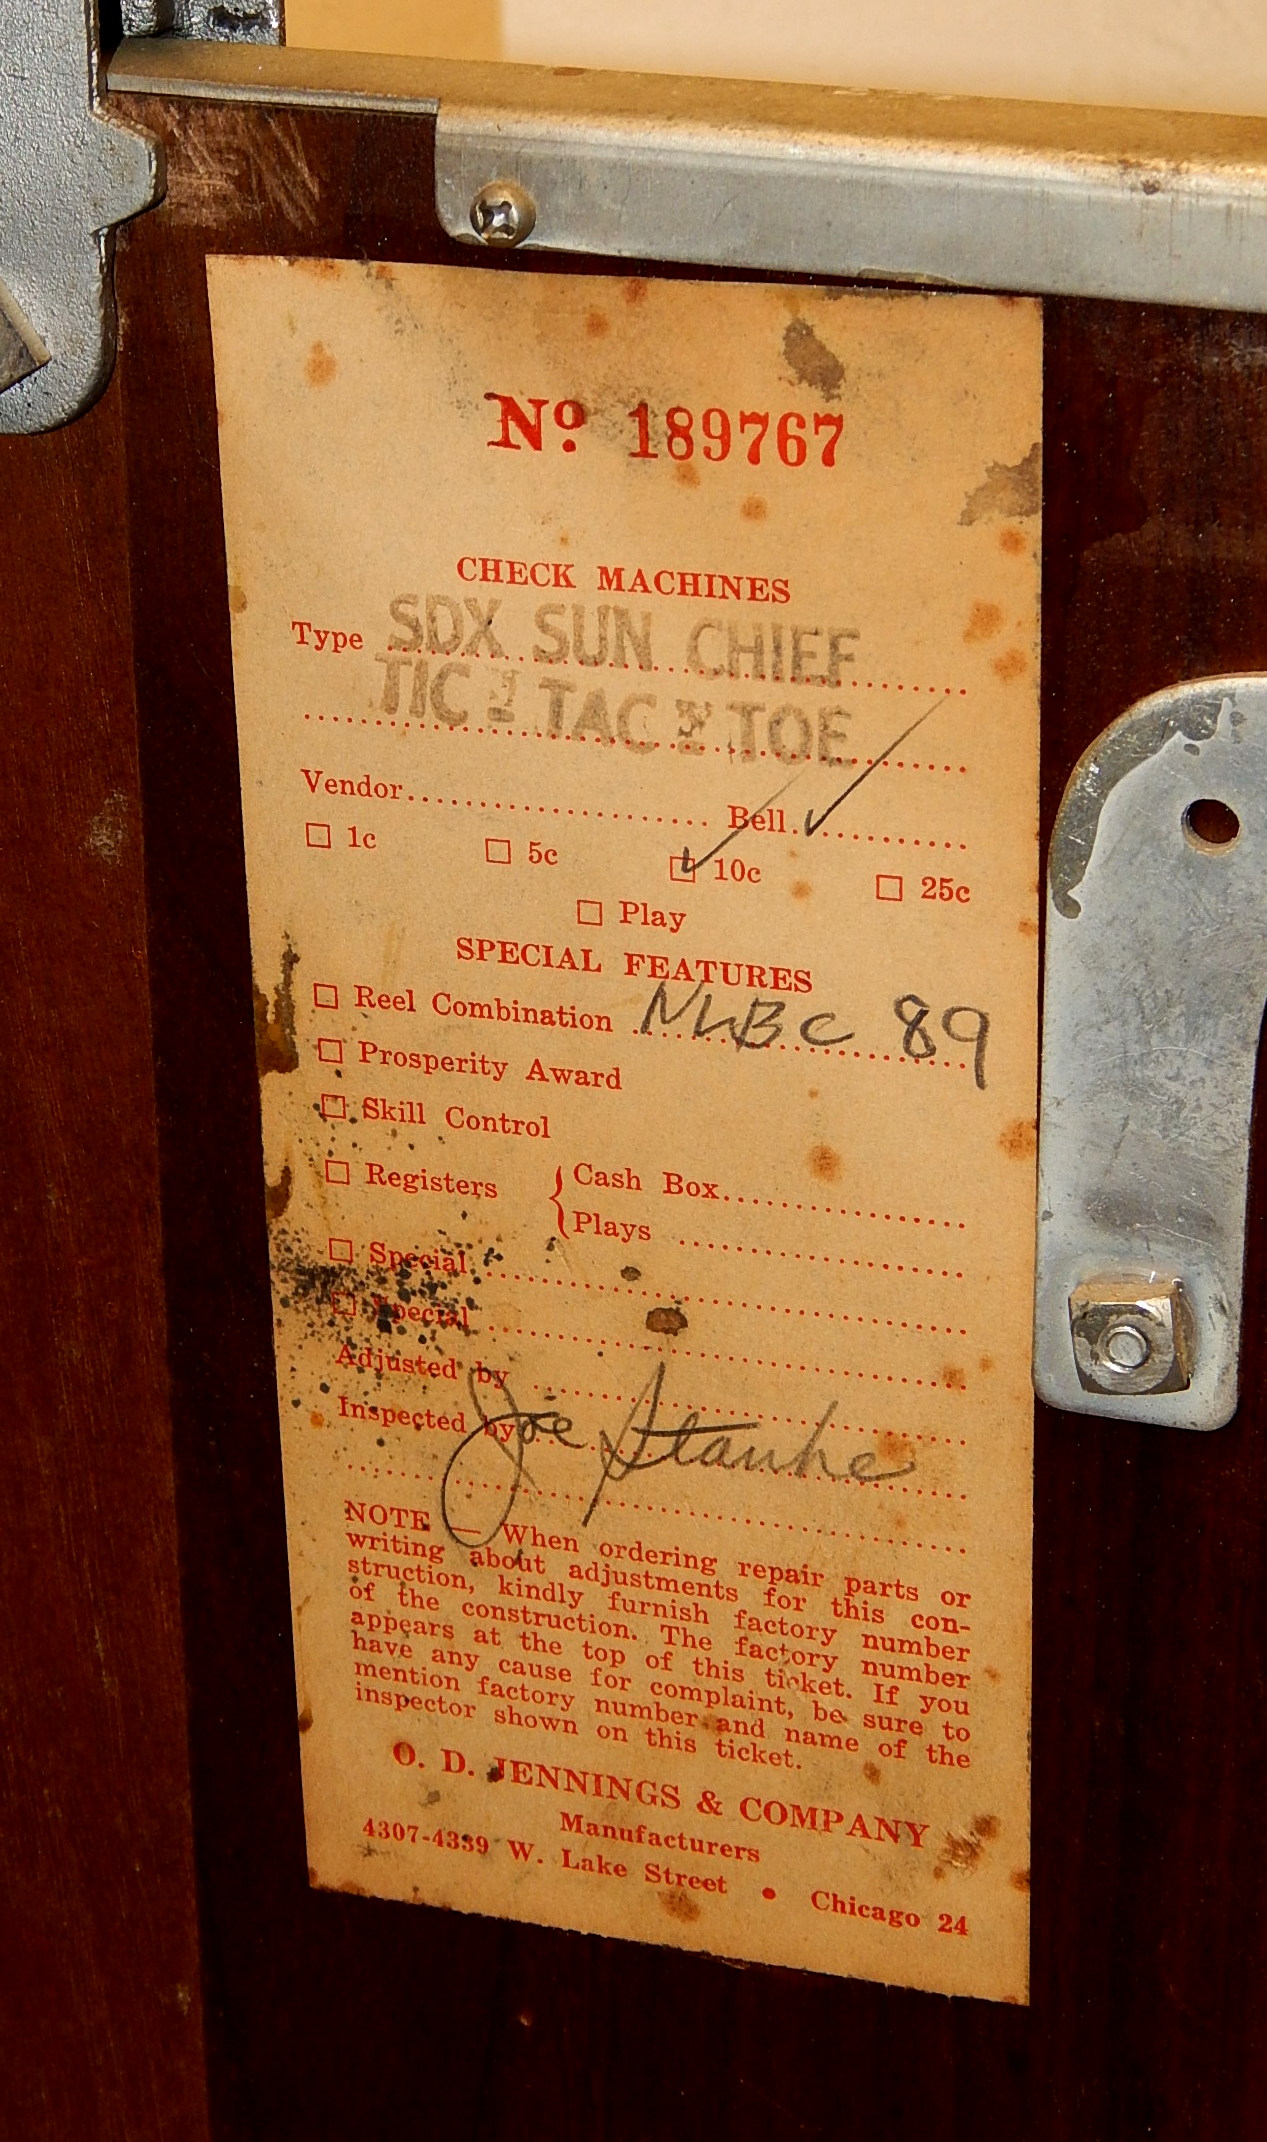 No. 189767
CHECK MACHINES
Type SDX SUN CHIEF
TIC - TAC - TOE
Vendor.................... Bell ✓
☐ 1c ☐ 5c ☑ 10c ☐ 25c
☐ Play
SPECIAL FEATURES
☐ Reel Combination NLBC 89
☐ Prosperity Award
☐ Skill Control
☐ Registers { Cash Box
Plays
☐ Special
☐ Special
Adjusted by
Inspected by Joe
NOTE — When ordering repair parts or
writing about adjustments for this con-
struction, kindly furnish factory number
of the construction. The factory number
appears at the top of this ticket. If you
have any cause for complaint, be sure to
mention factory number and name of the
inspector shown on this ticket.
O. D. JENNINGS & COMPANY
Manufacturers
4307-4339 W. Lake Street • Chicago 24